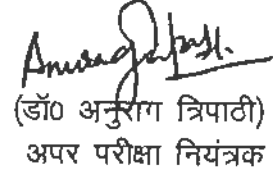 (डॉ0 अनुराग त्रिपाठी)
अपर परीक्षा नियंत्रक